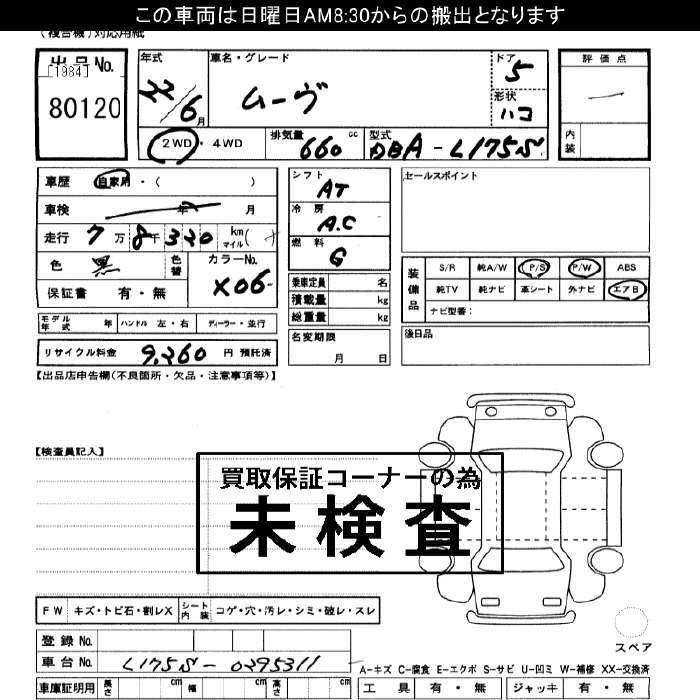 この車両は日曜日AM8:30からの搬出となります
(複合機)対応用紙
出品No.
[1984]
80120
年式
22/6月
車名・グレード
ムーヴ
ドア
5
形状
ハコ
評価点
内装
2WD・4WD
排気量
660cc
型式
DBA-L175S
車歴 自家用・( )
車検 年 月
走行 7万8千320 km マイル(
色 黒 色替
カラーNo.
X06
保証書 有・無
シフト
AT
冷房
A.C
燃料
G
乗車定員 名
積載量 kg
総重量 kg
セールスポイント
装備品
S/R 純A/W P/S P/W ABS
純TV 純ナビ 革シート 外ナビ エアB
ナビ型番:
モデル年式 年 ハンドル 左・右 ディーラー・並行
名変期限
月 日
後日品
リサイクル料金 9,260 円 預託済
【出品店申告欄(不良箇所・欠品・注意事項等)】
【検査員記入】
買取保証コーナーの為
未検査
FW キズ・トビ石・割レX シート内装 コゲ・穴・汚レ・シミ・破レ・スレ
スペア
登録No.
車台No. L175S-0295311
A-キズ C-腐食 E-エクボ S-サビ U-凹ミ W-補修 XX-交換済
車庫証明用 長さ cm 幅 cm 高さ cm
工具 有・無 ジャッキ 有・無